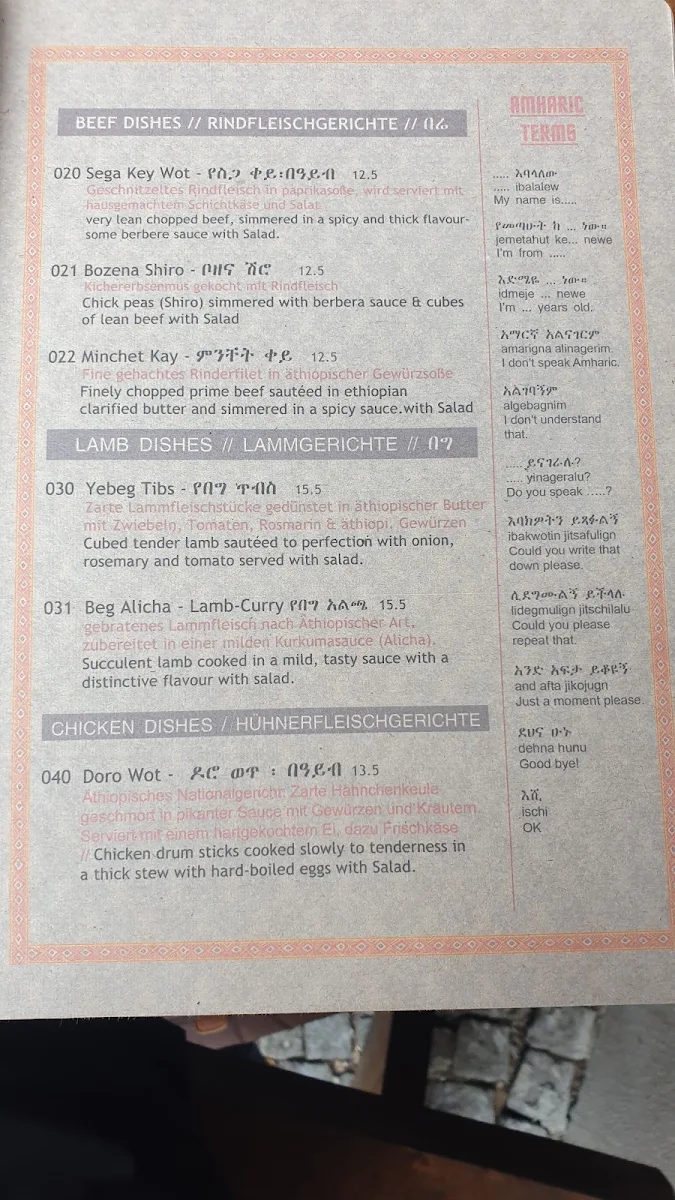 BEEF DISHES // RINDFLEISCHGERICHTE // በሬ
020 Sega Key Wot - የስጋ ቀይ፡በዓይብ 12.5
Geschnitzeltes Rindfleisch in paprikasoße, wird serviert mit
hausgemachtem Schichtkäse und Salat
very lean chopped beef, simmered in a spicy and thick flavour-
some berbere sauce with Salad.
021 Bozena Shiro - ቦዘና ሽሮ 12.5
Kichererbsenmus gekocht mit Rindfleisch
Chick peas (Shiro) simmered with berbera sauce & cubes
of lean beef with Salad
022 Minchet Kay - ምንቸት ቀይ 12.5
Fine gehachtes Rinderfilet in äthiopischer Gewürzsoße
Finely chopped prime beef sautéed in ethiopian
clarified butter and simmered in a spicy sauce.with Salad
LAMB DISHES // LAMMGERICHTE // በግ
030 Yebeg Tibs - የበግ ጥብስ 15.5
Zarte Lammfleischstücke gedünstet in äthiopischer Butter
mit Zwiebeln, Tomaten, Rosmarin & äthiopi. Gewürzen
Cubed tender lamb sautéed to perfection with onion,
rosemary and tomato served with salad.
031 Beg Alicha - Lamb-Curry የበግ አልጫ 15.5
gebratenes Lammfleisch nach Äthiopischer Art,
zubereitet in einer milden Kurkumasauce (Alicha).
Succulent lamb cooked in a mild, tasty sauce with a
distinctive flavour with salad.
CHICKEN DISHES / HÜHNERFLEISCHGERICHTE
040 Doro Wot - ዶሮ ወጥ ፡ በዓይብ 13.5
Äthiopisches Nationalgericht: Zarte Hähnchenkeule
geschmort in pikanter Sauce mit Gewürzen und Kräutern.
Serviert mit einem hartgekochtem Ei, dazu Frischkäse
// Chicken drum sticks cooked slowly to tenderness in
a thick stew with hard-boiled eggs with Salad.
AMHARIC
TERMS
..... እባላለው
..... ibalalew
My name is.....
የመጣሁት ከ ... ነው።
jemetahut ke... newe
I'm from .....
እድሜዬ ... ነው።
idmeje ... newe
I'm ... years old.
አማርኛ አልናገርም
amarigna alinagerim
I don't speak Amharic.
አልገባኝም
algebagnim
I don't understand
that.
..... ይናገራሉ?
..... yinageralu?
Do you speak .....?
እባክዎትን ይጻፉልኝ
ibakwotin jitsafulign
Could you write that
down please.
ሊደግሙልኝ ይችላሉ
lidegmulign jitschilalu
Could you please
repeat that.
አንድ አፍታ ይቆዩኝ
and afta jikojugn
Just a moment please.
ደህና ሁኑ
dehna hunu
Good bye!
እሺ
ischi
OK